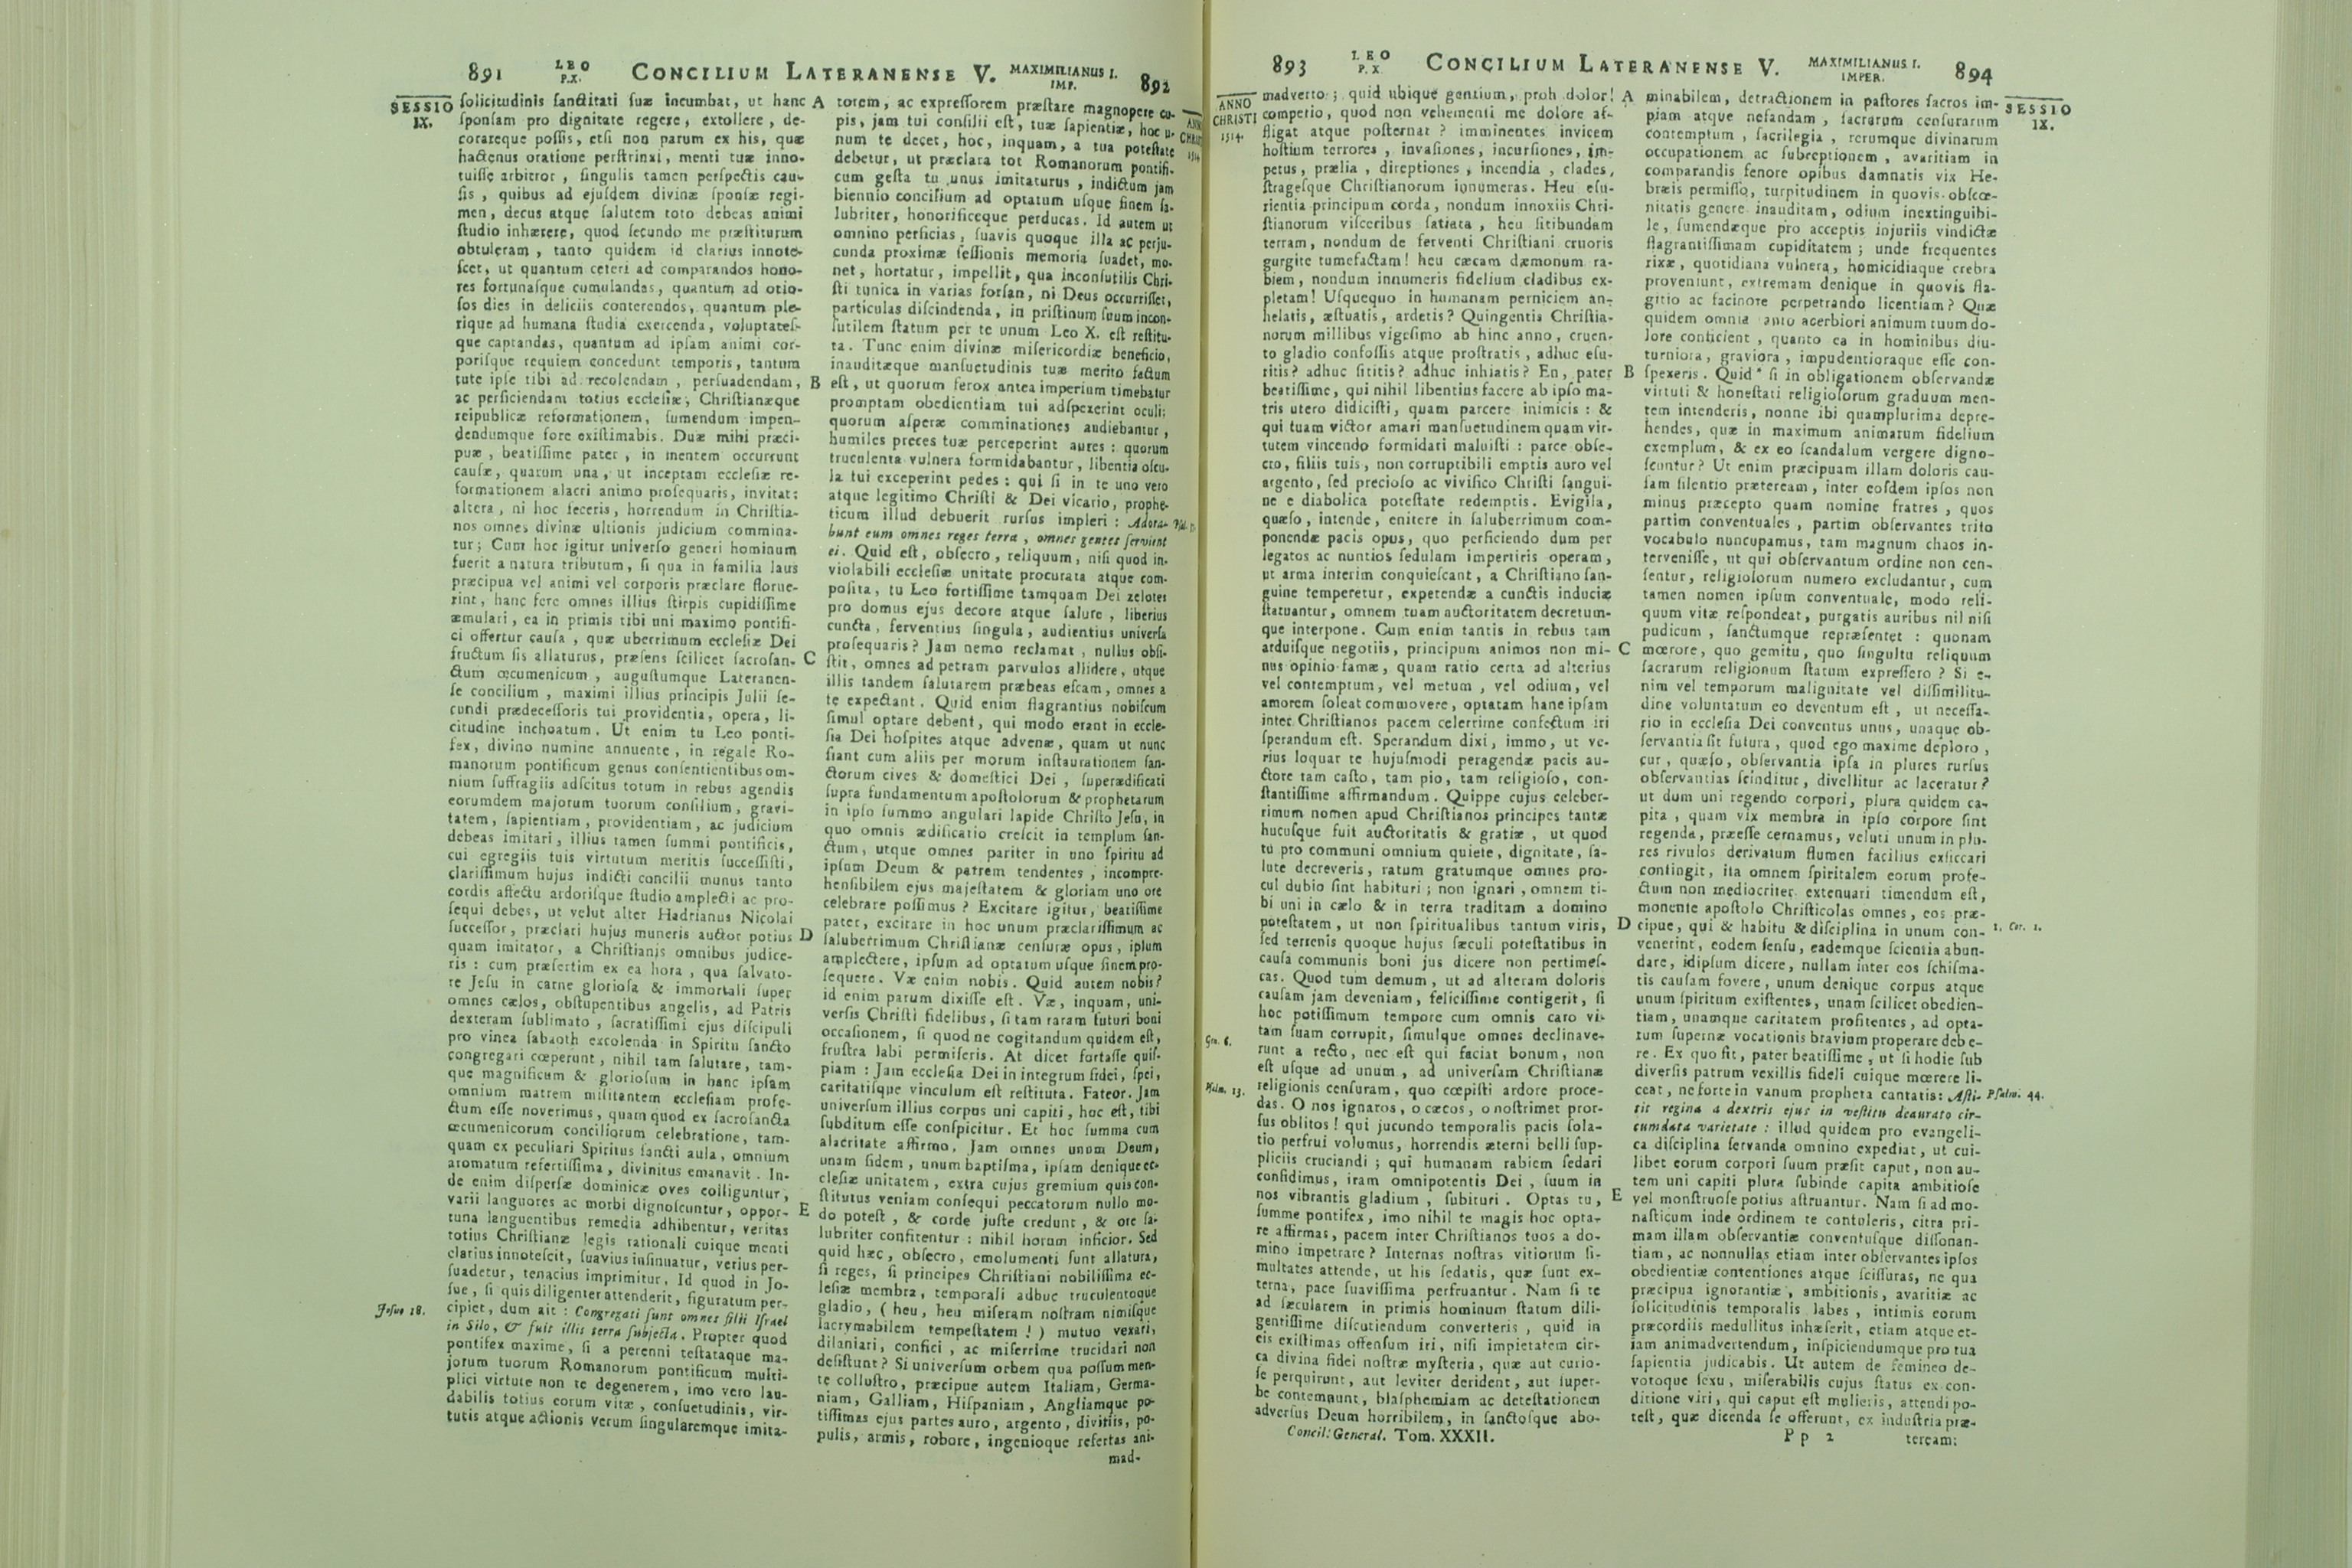 891 LEO P.X. CONCILIUM LATERANENSE V. MAXIMILIANUS I. IMP. 892
SESSIO IX.
ſolicitudinis ſanctitati ſuæ incumbat, ut hanc
ſponſam pro dignitate regere, extollere, de-
corareque poſſis, etſi non parum ex his, quæ
hactenus oratione perſtrinxi, menti tuæ inno-
tuiſſe arbitror, ſingulis tamen perſpectis cau-
ſis, quibus ad ejuſdem divinæ ſponſæ regi-
men, decus atque ſalutem toto debeas animi
ſtudio inhærere, quod ſecundo me præſtiturum
obtuleram, tanto quidem id clarius innote-
ſcet, ut quantum ceteri ad comparandos hono-
res fortunaſque cumulandas, quantum ad otio-
ſos dies in deliciis conterendos, quantum ple-
rique ad humana ſtudia exercenda, voluptateſ-
que captandas, quantum ad ipſam animi cor-
poriſque requiem concedunt temporis, tantum
tute ipſe tibi ad recolendam, perſuadendam,
ac perficiendam totius eccleſiæ, Chriſtianæque
reipublicæ reformationem, ſumendum impen-
dendumque fore exiſtimabis. Duæ mihi præci-
puæ, beatiſſime pater, in mentem occurrunt
cauſæ, quarum una, ut inceptam eccleſiæ re-
formationem alacri animo proſequaris, invitat:
altera, ni hoc feceris, horrendum in Chriſtia-
nos omnes divinæ ultionis judicium commina-
tur; Cum hoc igitur univerſo generi hominum
fuerit a natura tributum, ſi qua in familia laus
præcipua vel animi vel corporis præclare florue-
rint, hanc fere omnes illius ſtirpis cupidiſſime
æmulari, ea in primis tibi uni maximo pontifi-
ci offertur cauſa, quæ uberrimum eccleſiæ Dei
fructum ſis allaturus, præſens ſcilicet ſacroſan-
ctum œcumenicum, auguſtumque Lateranen-
ſe concilium, maximi illius principis Julii ſe-
cundi prædeceſſoris tui providentia, opera, ſi-
citudine inchoatum. Ut enim tu Leo ponti-
fex, divino numine annuente, in regale Ro-
manorum pontificum genus conſentientibus om-
nium ſuffragiis adſcitus totum in rebus agendis
eorumdem majorum tuorum conſilium, gravi-
tatem, ſapientiam, providentiam, ac judicium
debeas imitari, illius tamen ſummi pontificis,
cui egregiis tuis virtutum meritis ſucceſſiſti,
clariſſimum hujus indicti concilii munus tanto
cordis affectu ardoriſque ſtudio amplecti ac pro-
ſequi debes, ut velut alter Hadrianus Nicolai
ſucceſſor, præclari hujus muneris auctor potius
quam imitator, a Chriſtianis omnibus judice-
ris: cum præſertim ex ea hora, qua ſalvato-
re Jeſu in carne glorioſa & immortali ſuper
omnes cælos, obſtupentibus angelis, ad Patris
dexteram ſublimato, ſacratiſſimi ejus diſcipuli
pro vinea ſabaoth excolenda in Spiritu ſancto
congregari cœperunt, nihil tam ſalutare, tam-
que magnificum & glorioſum in hanc ipſam
omnium matrem militantem eccleſiam profe-
ctum eſſe noverimus, quam quod ex ſacroſancta
œcumenicorum conciliorum celebratione, tam-
quam ex peculiari Spiritus ſancti aula, omnium
aromatum refertiſſima, divinitus emanavit. In-
de enim diſperſæ dominicæ oves colliguntur,
varii languores ac morbi dignoſcuntur, oppor-
tuna languentibus remedia adhibentur, veritas
totius Chriſtianæ legis rationali cuique menti
clarius innoteſcit, ſuavius inſinuatur, verius per-
ſuadetur, tenacius imprimitur. Id quod in Jo-
ſue, ſi quis diligenter attenderit, figuratum per-
Joſue 18.
cipiet, dum ait: Congregati ſunt omnes filii Iſrael
in Silo, & fuit illis terra ſubjecta. Propter quod
pontifex maxime, ſi a perenni teſtataque ma-
jorum tuorum Romanorum pontificum multi-
plici virtute non te degenerem, imo vero lau-
dabilis totius eorum vitæ, conſuetudinis, vir-
tutis atque actionis verum ſingularemque imita-
A
B
C
D
E
torem, ac expreſſorem præſtare magnopere cu-
pis, jam tui conſilii eſt, tuæ ſapientiæ, hoc u-
num te decet, hoc, inquam, a tua poteſtate
debetur, ut præclara tot Romanorum pontifi-
cum geſta tu unus imitaturus, indictum jam
biennio concilium ad optatum uſque finem ſa-
lubriter, honorificeque perducas. Id autem ut
omnino perficias, ſuavis quoque illa ac perju-
cunda proximæ ſeſſionis memoria ſuadet, mo-
net, hortatur, impellit, qua inconſutilis Chri-
ſti tunica in varias forſan, ni Deus occurriſſet,
particulas diſcindenda, in priſtinum ſuum incon-
ſutilem ſtatum per te unum Leo X. eſt reſtitu-
ta. Tunc enim divinæ miſericordiæ beneficio,
inauditæque manſuetudinis tuæ merito factum
eſt, ut quorum ferox antea imperium timebatur
promptam obedientiam tui adſpexerint oculi;
quorum aſperæ comminationes audiebantur,
humiles preces tuæ perceperint aures: quorum
truculenta vulnera formidabantur, libentia oſcu-
la tui exceperint pedes: qui ſi in te uno vero
atque legitimo Chriſti & Dei vicario, prophe-
ticum illud debuerit rurſus impleri: Adora-
bunt eum omnes reges terra, omnes gentes ſervient
ei. Quid eſt, obſecro, reliquum, niſi quod in-
violabili eccleſiæ unitate procurata atque com-
poſita, tu Leo fortiſſime tamquam Dei zelotes
pro domus ejus decore atque ſalute, liberius
cuncta, ferventius ſingula, audientius univerſa
proſequaris? Jam nemo reclamat, nullus obſi-
ſtit, omnes ad petram parvulos allidere, utque
illis tandem ſalutarem præbeas eſcam, omnes a
te expectant. Quid enim flagrantius nobiſcum
ſimul optare debent, qui modo erant in eccle-
ſia Dei hoſpites atque advenæ, quam ut nunc
fiant cum aliis per morum inſtaurationem ſan-
ctorum cives & domeſtici Dei, ſuperædificati
ſupra fundamentum apoſtolorum & prophetarum
in ipſo ſummo angulari lapide Chriſto Jeſu, in
quo omnis ædificatio creſcit in templum ſan-
ctum, utque omnes pariter in uno ſpiritu ad
ipſum Deum & patrem tendentes, incompre-
henſibilem ejus majeſtatem & gloriam uno ore
celebrare poſſimus? Excitare igitur, beatiſſime
pater, excitare in hoc unum præclariſſimum ac
ſaluberrimum Chriſtianæ cenſuræ opus, ipſum
amplectere, ipſum ad optatum uſque finem pro-
ſequere. Væ enim nobis. Quid autem nobis?
id enim parum dixiſſe eſt. Væ, inquam, uni-
verſis Chriſti fidelibus, ſi tam raram futuri boni
occaſionem, ſi quod ne cogitandum quidem eſt,
fruſtra labi permiſeris. At dicet fortaſſe quiſ-
piam: Jam eccleſia Dei in integrum fidei, ſpei,
caritatiſque vinculum eſt reſtituta. Fateor. Jam
univerſum illius corpus uni capiti, hoc eſt, tibi
ſubditum eſſe conſpicitur. Et hoc ſumma cum
alacritate affirmo. Jam omnes unum Deum,
unam fidem, unum baptiſma, ipſam denique ec-
cleſiæ unitatem, extra cujus gremium quis con-
ſtitutus veniam conſequi peccatorum nullo mo-
do poteſt, & corde juſte credunt, & ore ſa-
lubriter confitentur: nihil horum inficior. Sed
quid hæc, obſecro, emolumenti ſunt allatura,
ſi reges, ſi principes Chriſtiani nobiliſſima ec-
leſiæ membra, temporali adhuc truculentoque
gladio, (heu, heu miſeram noſtram nimiſque
lacrymabilem tempeſtatem!) mutuo vexari,
dilaniari, confici, ac miſerrime trucidari non
deſiſtunt? Si univerſum orbem qua poſſum men-
te colluſtro, præcipue autem Italiam, Germa-
niam, Galliam, Hiſpaniam, Angliamque po-
tiſſimas ejus partes auro, argento, divitiis, po-
pulis, armis, robore, ingenioque refertas ani-
mad-
893 LEO P. X. CONCILIUM LATERANENSE V. MAXIMILIANUS I. IMPER. 894
ANNO CHRISTI 1514.
madverto; quid ubique gentium, proh dolor!
comperio, quod non vehementi me dolore af-
fligat atque poſternat? imminentes invicem
hoſtium terrores, invaſiones, incurſiones, im-
petus, prælia, direptiones, incendia, clades,
ſtrageſque Chriſtianorum innumeras. Heu eſu-
rientia principum corda, nondum innoxiis Chri-
ſtianorum viſceribus ſatiata, heu ſitibundam
terram, nondum de ferventi Chriſtiani cruoris
gurgite tumefactam! heu cæcam dæmonum ra-
biem, nondum innumeris fidelium cladibus ex-
pletam! Uſquequo in humanam perniciem an-
helatis, æſtuatis, ardetis? Quingentis Chriſtia-
norum millibus vigeſimo ab hinc anno, cruen-
to gladio confoſſis atque proſtratis, adhuc eſu-
ritis? adhuc ſititis? adhuc inhiatis? En, pater
beatiſſime, qui nihil libentius facere ab ipſo ma-
tris utero didiciſti, quam parcere inimicis: &
qui tuam victor amari manſuetudinem quam vir-
tutem vincendo formidari maluiſti: parce obſe-
cro, filiis tuis, non corruptibili emptis auro vel
argento, ſed precioſo ac vivifico Chriſti ſangui-
ne e diabolica poteſtate redemptis. Evigila,
quæſo, intende, enitere in ſaluberrimum com-
ponendæ pacis opus, quo perficiendo dum per
legatos ac nuntios ſedulam impertiris operam,
ut arma interim conquieſcant, a Chriſtiano ſan-
guine temperetur, expetendæ a cunctis induciæ
ſtatuantur, omnem tuam auctoritatem decretum-
que interpone. Cum enim tantis in rebus tam
arduiſque negotiis, principum animos non mi-
nus opinio famæ, quam ratio certa ad alterius
vel contemptum, vel metum, vel odium, vel
amorem ſoleat commovere, optatam hanc ipſam
inter Chriſtianos pacem celerrime confectum iri
ſperandum eſt. Sperandum dixi, immo, ut ve-
rius loquar te hujuſmodi peragendæ pacis au-
ctore tam caſto, tam pio, tam religioſo, con-
ſtantiſſime affirmandum. Quippe cujus celeber-
rimum nomen apud Chriſtianos principes tantæ
hucuſque fuit auctoritatis & gratiæ, ut quod
tu pro communi omnium quiete, dignitate, ſa-
lute decreveris, ratum gratumque omnes pro-
cul dubio ſint habituri; non ignari, omnem ti-
bi uni in cælo & in terra traditam a domino
poteſtatem, ut non ſpiritualibus tantum viris,
ſed terrenis quoque hujus ſæculi poteſtatibus in
cauſa communis boni jus dicere non pertimeſ-
cas. Quod tum demum, ut ad alteram doloris
cauſam jam deveniam, feliciſſime contigerit, ſi
hoc potiſſimum tempore cum omnis caro vi-
Gen. 6.
tam ſuam corrupit, ſimulque omnes declinave-
runt a recto, nec eſt qui faciat bonum, non
eſt uſque ad unum, ad univerſam Chriſtianæ
Pſalm. 13.
religionis cenſuram, quo cœpiſti ardore proce-
das. O nos ignaros, o cæcos, o noſtrimet pror-
ſus oblitos! qui jucundo temporalis pacis ſola-
tio perfrui volumus, horrendis æterni belli ſup-
pliciis cruciandi; qui humanam rabiem ſedari
confidimus, iram omnipotentis Dei, ſuum in
nos vibrantis gladium, ſubituri. Optas tu,
ſumme pontifex, imo nihil te magis hoc opta-
re affirmas, pacem inter Chriſtianos tuos a do-
mino impetrare? Internas noſtras vitiorum ſi-
multates attende, ut his ſedatis, quæ ſunt ex-
terna, pace ſuaviſſima perfruantur. Nam ſi te
ad ſæcularem in primis hominum ſtatum dili-
gentiſſime diſcutiendum converteris, quid in
eis exiſtimas offenſum iri, niſi impietatem cir-
ca divina fidei noſtræ myſteria, quæ aut curio-
ſe perquirunt, aut leviter derident, aut ſuper-
be contemnunt, blaſphemiam ac deteſtationem
adverſus Deum horribilem, in ſanctoſque abo-
Concil. General. Tom. XXXII.
A
B
C
D
E
SESSIO IX.
minabilem, detractionem in paſtores ſacros im-
piam atque nefandam, ſacrarum cenſurarum
contemptum, ſacrilegia, rerumque divinarum
occupationem ac ſubreptionem, avaritiam in
comparandis fenore opibus damnatis vix He-
bræis permiſſo, turpitudinem in quovis obſcœ-
nitatis genere inauditam, odium inextinguibi-
le, ſumendæque pro acceptis injuriis vindictæ
flagrantiſſimam cupiditatem; unde frequentes
rixæ, quotidiana vulnera, homicidiaque crebra
proveniunt, extremam denique in quovis fla-
gitio ac facinore perpetrando licentiam? Quæ
quidem omnia tanto acerbiori animum tuum do-
lore conficient, quanto ea in hominibus diu-
turniora, graviora, impudentioraque eſſe con-
ſpexeris. Quid ſi in obligationem obſervandæ
virtuti & honeſtati religioſorum graduum men-
tem intenderis, nonne ibi quamplurima depre-
hendes, quæ in maximum animarum fidelium
exemplum, & ex eo ſcandalum vergere digno-
ſcuntur? Ut enim præcipuam illam doloris cau-
ſam ſilentio præteream, inter eoſdem ipſos non
minus præcepto quam nomine fratres, quos
partim conventuales, partim obſervantes trito
vocabulo nuncupamus, tam magnum chaos in-
terveniſſe, ut qui obſervantum ordine non cen-
ſentur, religioſorum numero excludantur, cum
tamen nomen ipſum conventuale, modo reli-
quum vitæ reſpondeat, purgatis auribus nil niſi
pudicum, ſanctumque repræſentet: quonam
mœrore, quo gemitu, quo ſingultu reliquum
ſacrarum religionum ſtatum expreſſero? Si e-
nim vel temporum malignitate vel diſſimilitu-
dine voluntatum eo deventum eſt, ut neceſſa-
rio in eccleſia Dei conventus unus, unaque ob-
ſervantia ſit futura, quod ego maxime deploro,
cur, quæſo, obſervantia ipſa in plures rurſus
obſervantias ſcinditur, divellitur ac laceratur?
ut dum uni regendo corpori, plura quidem ca-
pita, quam vix membra in ipſo corpore ſint
regenda, præeſſe cernamus, veluti unum in plu-
res rivulos derivatum flumen facilius exſiccari
contingit, ita omnem ſpiritalem eorum profe-
ctum non mediocriter extenuari timendum eſt,
monente apoſtolo Chriſticolas omnes, eos præ-
1. Cor. 1.
cipue, qui & habitu & diſciplina in unum con-
venerint, eodem ſenſu, eademque ſcientia abun-
dare, idipſum dicere, nullam inter eos ſchiſma-
tis cauſam fovere, unum denique corpus atque
unum ſpiritum exiſtentes, unam ſcilicet obedien-
tiam, unamque caritatem profitentes, ad opta-
tum ſupernæ vocationis bravium properare debe-
re. Ex quo fit, pater beatiſſime, ut ſi hodie ſub
diverſis patrum vexillis fideli cuique mœrere li-
ceat, ne forte in vanum propheta cantatis: Aſti-
Pſalm. 44.
tit regina a dextris ejus in veſtitu deaurato cir-
cumdata varietate: illud quidem pro evangeli-
ca diſciplina ſervanda omnino expediat, ut cui-
libet eorum corpori ſuum præſit caput, non au-
tem uni capiti plura ſubinde capita ambitioſe
vel monſtruoſe potius aſtruantur. Nam ſi ad mo-
naſticum inde ordinem te contuleris, citra pri-
mam illam obſervantiæ conventuſque diſſonan-
tiam, ac nonnullas etiam inter obſervantes ipſos
obedientiæ contentiones atque ſciſſuras, ne qua
præcipua ignorantiæ, ambitionis, avaritiæ ac
ſolicitudinis temporalis labes, intimis eorum
præcordiis medullitus inhæſerit, etiam atque et-
iam animadvertendum, inſpiciendumque pro tua
ſapientia judicabis. Ut autem de femineo de-
votoque ſexu, miſerabilis cujus ſtatus ex con-
ditione viri, qui caput eſt mulieris, attendi po-
teſt, quæ dicenda ſe offerunt, ex induſtria præ-
P p 2 teream: